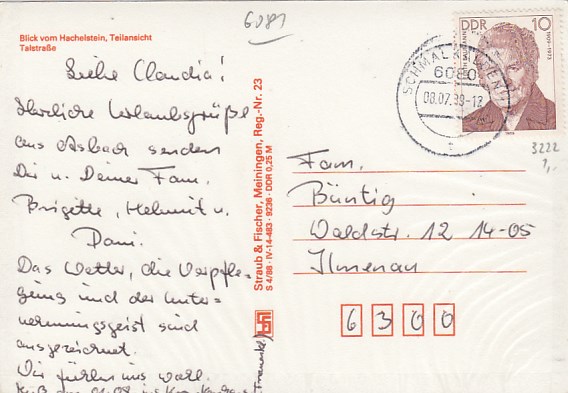 6081
Blick vom Hachelstein, Teilansicht
Talstraße
Liebe Claudia!
Herzliche Urlaubsgrüße
aus Asbach senden
Dir u. Deiner Fam.
Brigitte, Helmut u.
Dani.
Das Wetter, die Verpfle-
gung und der Unter-
nehmungsgeist sind
ausgezeichnet.
Wir fühlen uns wohl.
Straub & Fischer, Meiningen, Reg.-Nr. 23
S 4/88 · IV-14-483 · 9236 · DDR 0,25 M
DDR 10
SCHMALKALDEN 1
6080
08.07.89-12
3222
1,-
Fam.
Büntig
Waldstr. 12 14-05
Ilmenau
6300